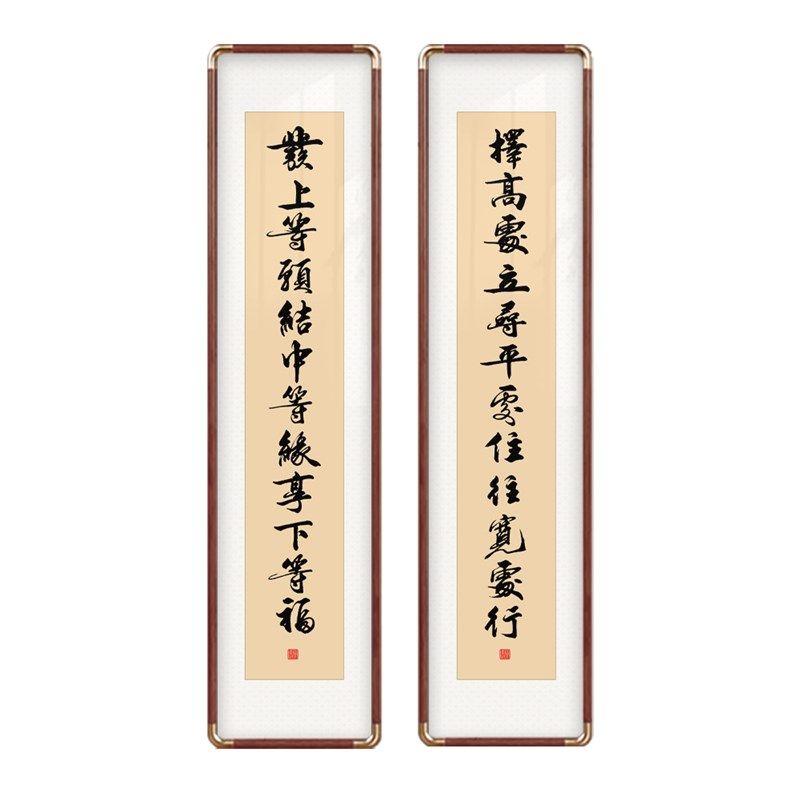 擇高處立尋平處住往寬處行
發上等願結中等緣享下等福